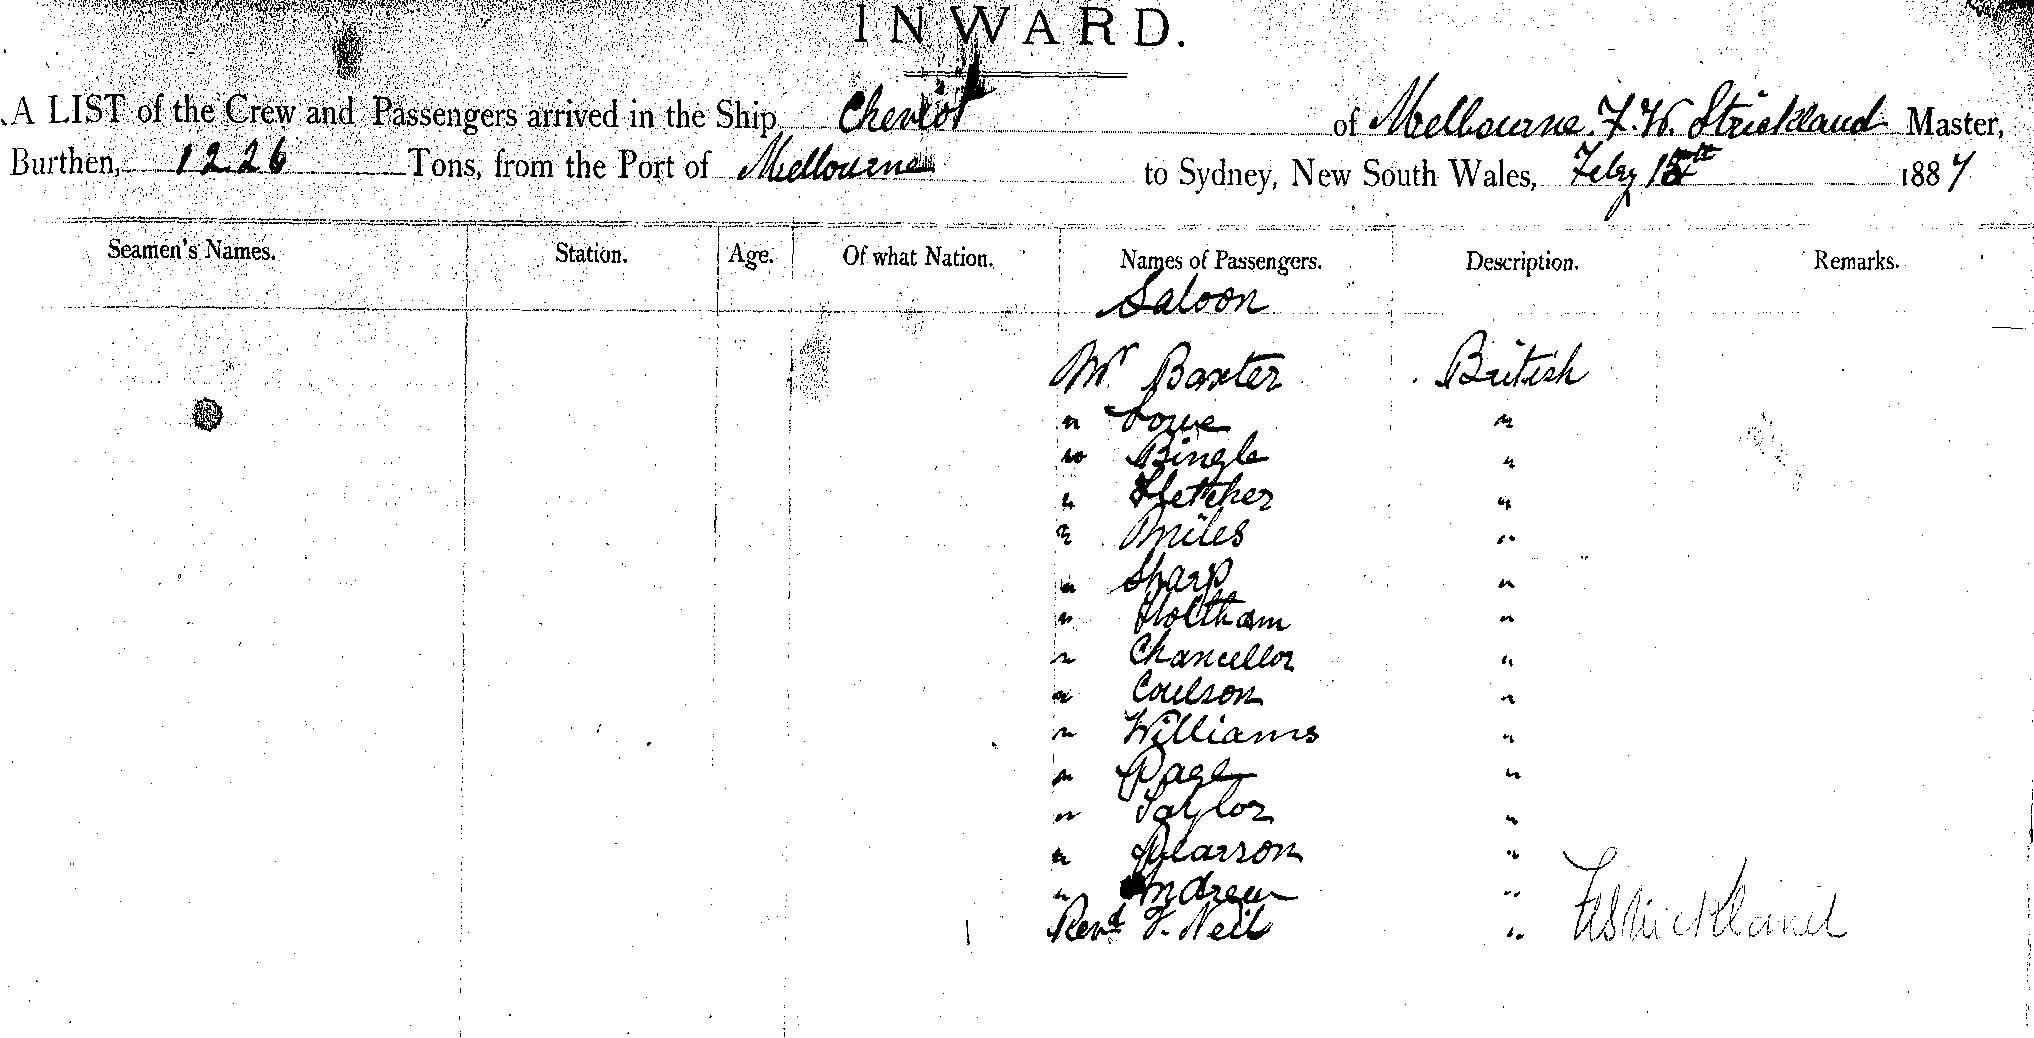 INWARD.
A LIST of the Crew and Passengers arrived in the Ship Cheviot of Melbourne. F. W. Strickland Master,
Burthen, 1226 Tons, from the Port of Melbourne to Sydney, New South Wales, Feby 15th 1887
Seamen's Names. Station. Age. Of what Nation. Names of Passengers. Description. Remarks.
Saloon
Mr Baxter British
" Lowe "
" Bingle "
" Fletcher "
" Miles "
" Sharp "
" Holtham "
" Chancellor "
" Coulson "
" Williams "
" Page "
" Taylor "
" Pearson "
" Andrew "
Revd F. Neil " FWStrickland